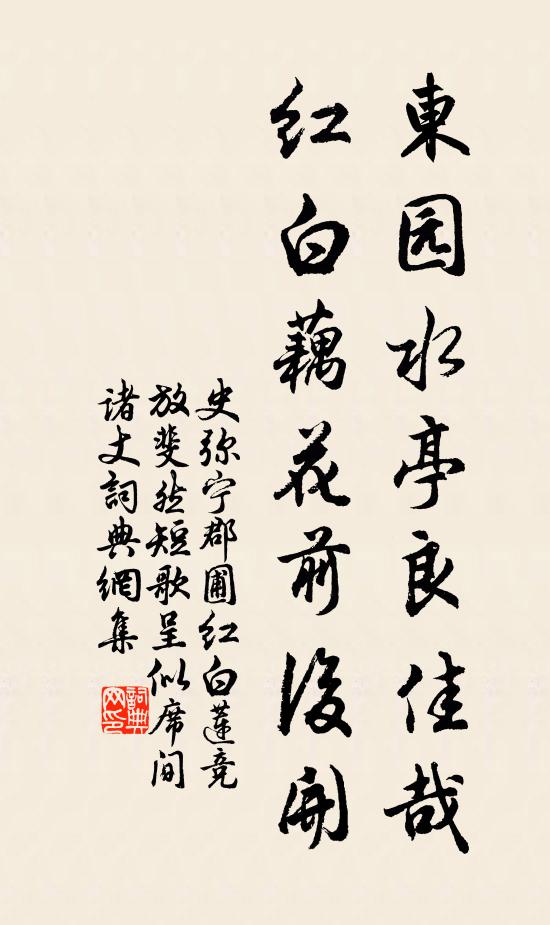 東园水亭良佳哉
红白藕花前後開
史弥宁郡圃红白莲竞
放斐然短歌呈似席间
诸丈詞典網集
詞典网印